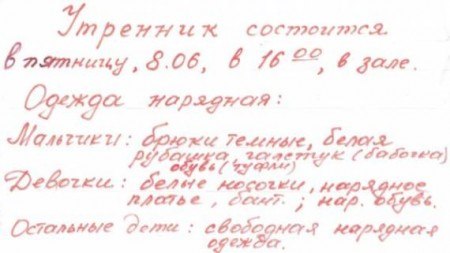 Утренник состоится
в пятницу, 8.06, в 16 00, в зале.
Одежда нарядная:
Мальчики: брюки темные, белая
рубашка, галстук (бабочка)
обувь (туфли)
Девочки: белые носочки, нарядное
платье, бант.; нар. обувь.
Остальные дети: свободная нарядная
одежда.